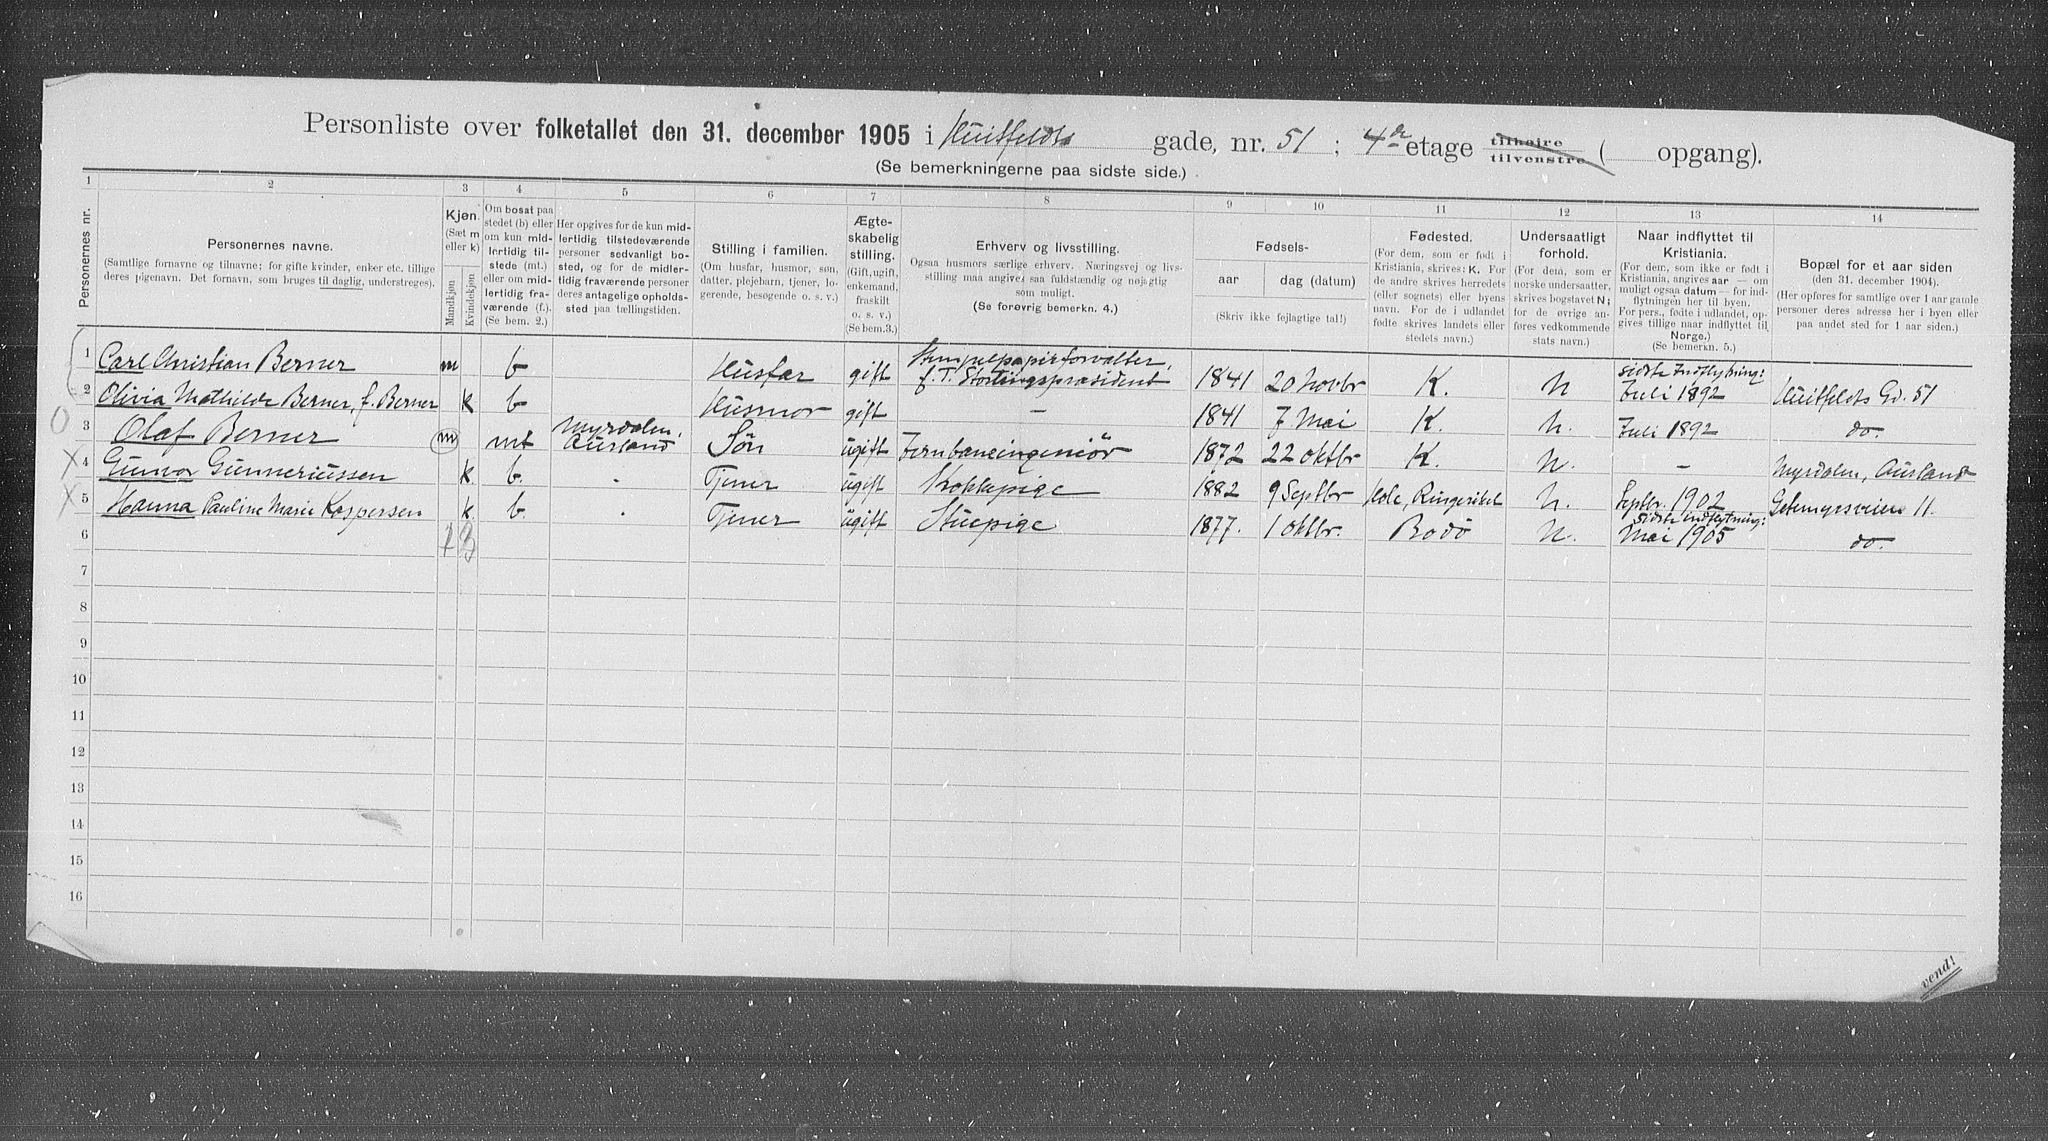 Personliste over folketallet den 31. december 1905 i Huitfeldts gade, nr. 51 ; 4de etage tilhøire tilvenstre ( opgang).
(Se bemerkningerne paa sidste side.)
1 2 3 4 5 6 7 8 9 10 11 12 13 14
Personernes nr.
Personernes navne.
(Samtlige fornavne og tilnavne; for gifte kvinder, enker etc. tillige
deres pigenavn. Det fornavn, som bruges til daglig, understreges).
Kjøn.
(Sæt m
eller k)
Mandkjøn
Kvindekjøn
Om bosat paa
stedet (b) eller
om kun mid-
lertidig til-
stede (mt.)
eller om mid-
lertidig fra-
værende (f.).
(Se bem. 2.)
Her opgives for de kun mid-
lertidig tilstedeværende
personer sedvanligt bo-
sted, og for de midler-
tidig fraværende personer
deres antagelige opholds-
sted paa tællingstiden.
Stilling i familien.
(Om husfar, husmor, søn,
datter, plejebarn, tjener, lo-
gerende, besøgende o. s. v.)
Ægte-
skabelig
stilling.
(Gift, ugift,
enkemand,
fraskilt
o. s. v.)
(Se bem.3.)
Erhverv og livsstilling.
Ogsaa husmors særlige erhverv. Næringsvej og livs-
stilling maa angives saa fuldstændig og nøjagtig
som muligt.
(Se forøvrig bemerkn. 4.)
Fødsels-
aar dag (datum)
(Skriv ikke fejlagtige tal!)
Fødested.
(For dem, som er født i
Kristiania, skrives: K. For
de andre skrives herredets
(eller sognets) eller byens
navn. For de i udlandet
fødte skrives landets eller
stedets navn.)
Undersaatligt
forhold.
(For dem, som er
norske undersaatter,
skrives bogstavet N;
for de øvrige an-
føres vedkommende
stats navn.)
Naar indflyttet til
Kristiania.
(For dem, som ikke er født i
Kristiania, angives aar — om
muligt ogsaa datum — for ind-
flytningen her til byen.
For pers., fødte i udlandet, op-
gives tillige naar indflyttet til
Norge.)
(Se bemerkn. 5.)
Bopæl for et aar siden
(den 31. december 1904).
(Her opføres for samtlige over 1 aar gamle
personer deres adresse her i byen eller
paa andet sted for 1 aar siden.)
1 Carl Christian Berner m b Husfar gift Stempelpapirforvalter, f. T. Stortingspræsident 1841 20 Novbr K. N sidste Indflytning: Juli 1892 Huitfeldts Gd. 51
2 Olivia Mathilde Berner, f. Berner k b Husmor gift — 1841 7 Mai K. N. Juli 1892 do.
3 Olaf Berner m mt Myrdalen, Aurland Sön ugift Jernbaneingeniör 1872 22 oktbr K. N. — Myrdalen, Aurland
4 Gunvor Gunneriussen k b. Tjener ugift Kokkepige 1882 9 Septbr Hole, Ringerike N. Septbr. 1902 Geitmyrsveien 11.
5 Hanna Pauline Marie Kaspersen k. b. Tjener ugift Stuepige 1877. 1 oktbr. Bodö N. sidste indflytning: Mai 1905 do.
6
7
8
9
10
11
12
13
14
15
16
vend!